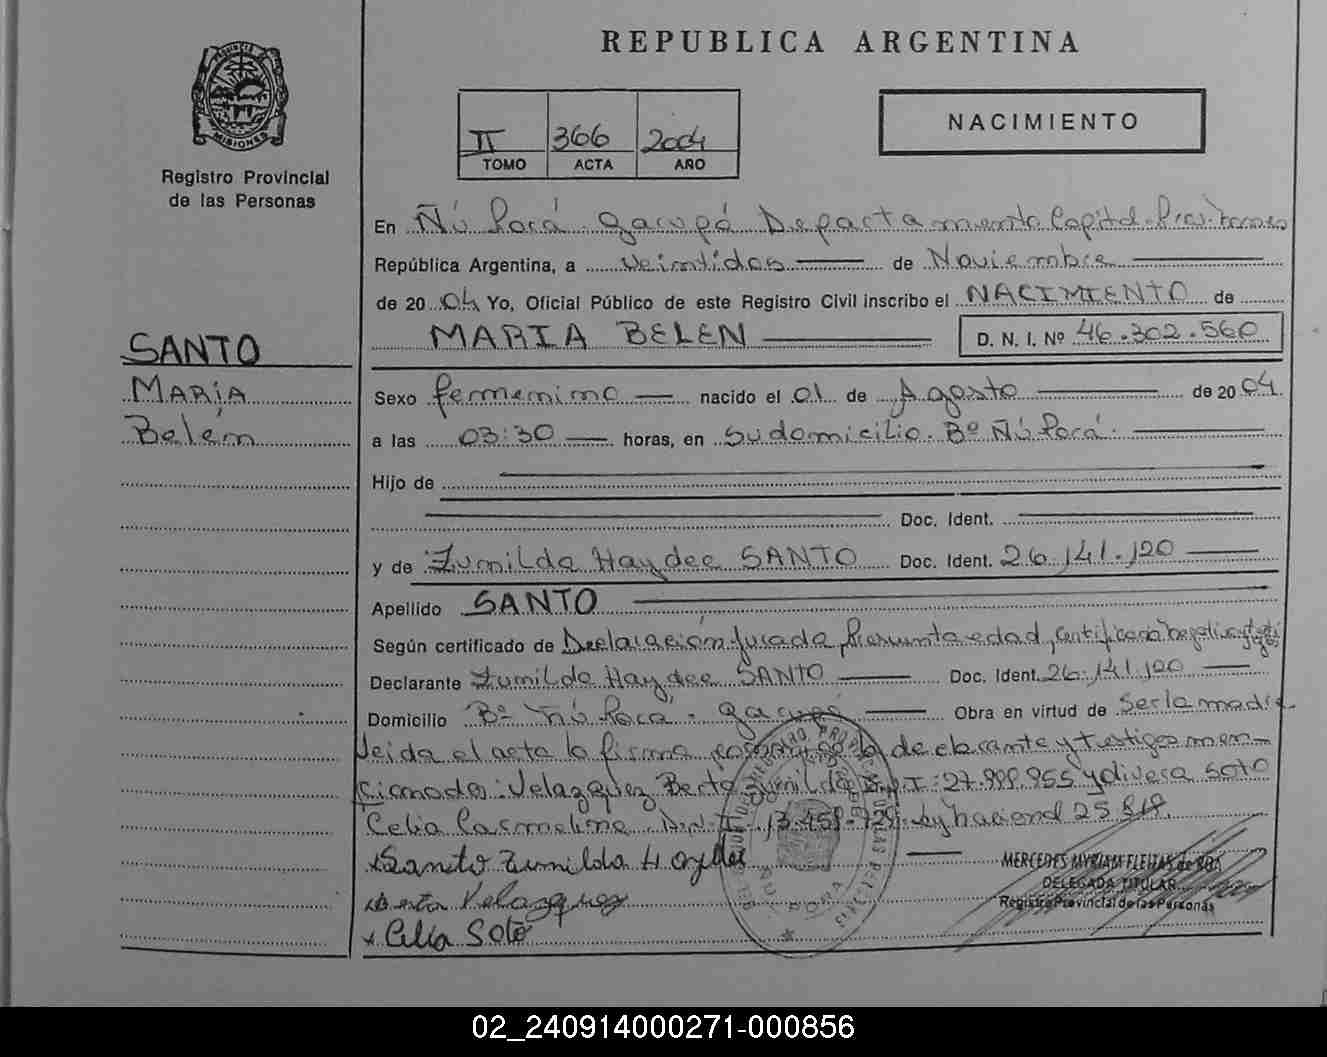 REPUBLICA ARGENTINA
PROVINCIA
MISIONES
Registro Provincial
de las Personas
II 366 2004
TOMO ACTA AÑO
NACIMIENTO
En Ñú Porá - Garupá Departamento Capital
República Argentina, a veintidos de Noviembre
de 2004 Yo, Oficial Público de este Registro Civil inscribo el NACIMIENTO de
MARIA BELEN D. N. I. Nº 46.302.560
SANTO
MARIA
Belén
Sexo femenino nacido el 01 de Agosto de 2004
a las 03:30 horas, en su domicilio. Bº Ñú Porá.
Hijo de
Doc. Ident.
y de Zumilda Haydee SANTO Doc. Ident. 26.141.120
Apellido SANTO
Según certificado de Declaración Jurada, Presunta edad, certificado negativo y
Declarante Zumilda Haydee SANTO Doc. Ident. 26.141.120
Domicilio Bº Ñú Porá - Garupá Obra en virtud de Ser la madre
leida el acta la firma la declarante y testigos men-
cionados: Velazquez Berta Zumilda D.N.I: 27.999.955 y Olivera SOTO
Celia Carmelina D.N.I: ley nacional 25.819.
x Santo Zumilda Haydee
x Berta Velazquez
x Celia Soto
MERCEDES MYRIAM FLEITAS de ROA
DELEGADA TITULAR
Registro Provincial de las Personas
02_240914000271-000856